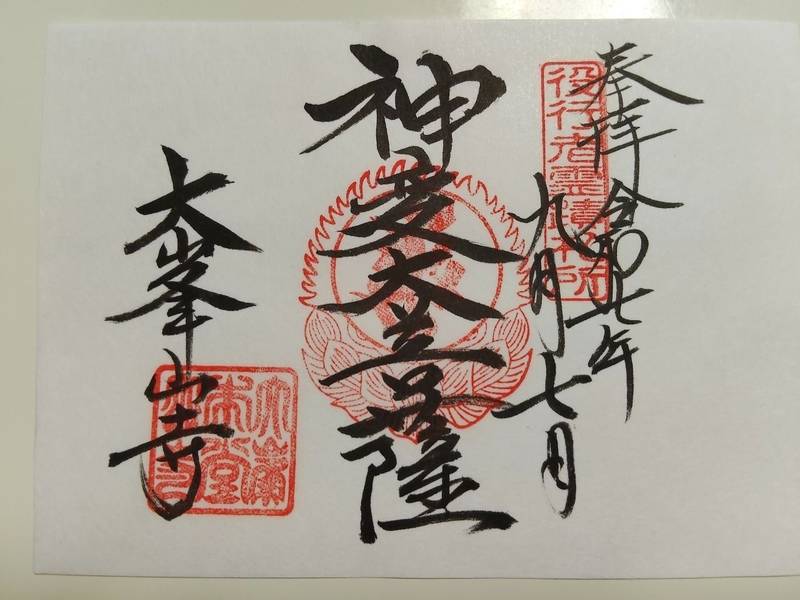 奉拝
令和七年
九月七日
役行者霊蹟札所
神変大菩薩
大峯山寺